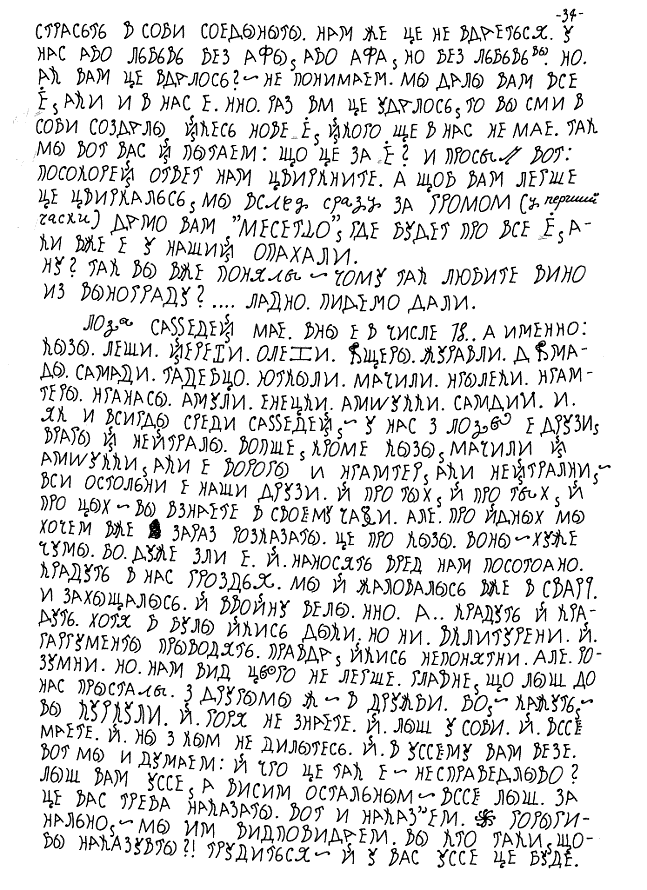 -34-
СТРАСЬТЬ В СОБИ СОЕДЫНЫТЫ. НАМ ЖЕ ЦЕ НЕ ВДАЕТЬСЯ. У
НАС АБО ЛЬБЬВЬ БЕЗ АФЫ, АБО АФА, НО БЕЗ ЛЬБЬВЬВЫ. НО.
АК ВАМ ЦЕ ВДАЛОСЬ? ~ НЕ ПОНИМАЕМ. МЫ ДАЛЫ ВАМ ВСЕ
Ё, АКИ И В НАС Е. ННО. РАЗ ВМ ЦЕ УДАЛОСЬ, ТО ВЫ СМИ В
СОБИ СОЗДАЛЫ ЙКЕСЬ НОВЕ Ё, ЙКОГО ЩЕ В НАС НЕ МАЕ. ТАК
МЫ ВОТ ВАС Й ПЫТАЕМ: ЩО ЦЕ ЗА Ё? И ПРОСЫМ ВОТ:
ПОСКОРЕЙ ОТВЕТ НАМ ЦВИРКНИТЕ. А ЩОБ ВАМ ЛЕГШЕ
ЦЕ ЦВИРКАЛЬСЬ, МЫ ВСЛЕД СРАЗУ ЗА ГРОМОМ (У ПЕРШИЙ
ЧАСКИ) ДАМО ВАМ "МЕСЕТДО", ГДЕ БУДЕТ ПРО ВСЕ Ё, А-
КИ ВЖЕ Е У НАШИЙ ОПАХАЛИ.
НУ? ТАК ВЫ ВЖЕ ПОНЯЛЫ ~ ЧОМУ ТАК ЛЮБИТЕ ВИНО
ИЗ ВЫНОГРАДУ? .... ЛАДНО. ПИДЕМО ДАЛИ.
ЛОЗА САSSЕДЕЙ МАЕ. ВНЫ Е В ЧИСЛЕ 18.. А ИМЕННО:
КЫЗЫ. ЛЕШИ. ЙЕРЕГИ. ОЛЕІИ. ЯЩЕРЫ. ЖУРАВЛИ. ДЯМА-
ДЫ. САМАДИ. ТАДЕБЦО. ЮТКЫЛИ. МАЧИЛИ. НГЫЛЕКИ. НГАМ-
ТЕРЫ. НГАНАСЫ. АМУЛИ. ЕНЕЦКИ. АМИУККИ. САМДИИ. И.
ЯК И ВСИГДЫ СРЕДИ САSSЕДЕЙ, ~ У НАС З ЛОЗОЮ Е ДРУЗИ,
ВРАГЫ Й НЕЙТРАЛЫ. ВОПШЕ, КРОМЕ КЫЗЫ, МАЧИЛИ Й
АМИУККИ, АКИ Е ВОРОГЫ И НГАМТЕР, АКИ НЕЙТРАЛНИ, ~
ВСИ ОСТОЛЬНИ Е НАШИ ДРУЗИ. Й ПРО ТЫХ, Й ПРО ТЬХ, Й
ПРО ЦЫХ ~ ВЫ ВЗНАЕТЕ В СВОЕМУ ЧАЗИ. АЛЕ. ПРО ЙДНЫХ МЫ
ХОЧЕМ ВЖЕ ЗАРАЗ РОЗКАЗАТЫ. ЦЕ ПРО КЫЗЫ. ВОНЫ ~ ХУЖЕ
ЧУМЫ. БО. ДУЖЕ ЗЛИ Е. Й. НАНОСЯТЬ ВРЕД НАМ ПОСТОАНО.
КРАДУТЬ В НАС ГРОЗДЬЯ. МЫ Й ЖАЛОВАЛЫСЬ ВЖЕ В СВАРГ.
И ЗАХЫЩАЛЫСЬ. Й ВВОЙНУ ВЕЛЫ. ННО. А.. КРАДУТЬ Й КРА-
ДУТЬ. ХОТЯ Б БУЛЫ ЙКИСЬ ДЫКИ. НО НИ. ВКЛИТУРЕНИ. Й.
ГАРГУМЕНТЫ ПРЫВОДЯТЬ. ПРАВДА, ЙКИСЬ НЕПОНЯТНИ. АЛЕ. РО-
ЗУМНИ. НО. НАМ ВИД ЦЬОГО НЕ ЛЕГШЕ. ГЛАВНЕ, ЩО ЛЫШ ДО
НАС ПРЫСТАЛЫ. З ДРУГЫМЫ Ж ~ В ДРУЖБИ. БО, ~ КАЖУТЬ, ~
ВЫ КУРКУЛИ. Й. ГОРЯ НЕ ЗНАЕТЕ. Й. ЛЫШ У СОБИ. Й. ВССЁ
МАЕТЕ. Й. НЫ З КЫМ НЕ ДИЛЫТЕСЬ. Й. В УССЕМУ ВАМ ВЕЗЕ.
ВОТ МЫ И ДУМАЕМ: Й ЧТО ЦЕ ТАК Е ~ НЕСПРАВЕДЛЫВО?
ЛЫШ ВАМ УССЕ, А ВИСИМ ОСТАЛЬНЫМ ~ ВССЕ ЛЫШ. ЗА
ЦЕ ВАС ТРЕБА НАКАЗАТЫ. ВОТ И НАКАЗУЕМ. ГОРЫГИ-
НАЛЬНО, ~ МЫ ИМ ВИДПОВИДАЕМ. ВЫ КТО ТАКИ, ЩО-
БЫ НАКАЗУВТЫ?! ТРУДИТЬСЯ ~ Й У ВАС УССЕ ЦЕ БУДЕ.